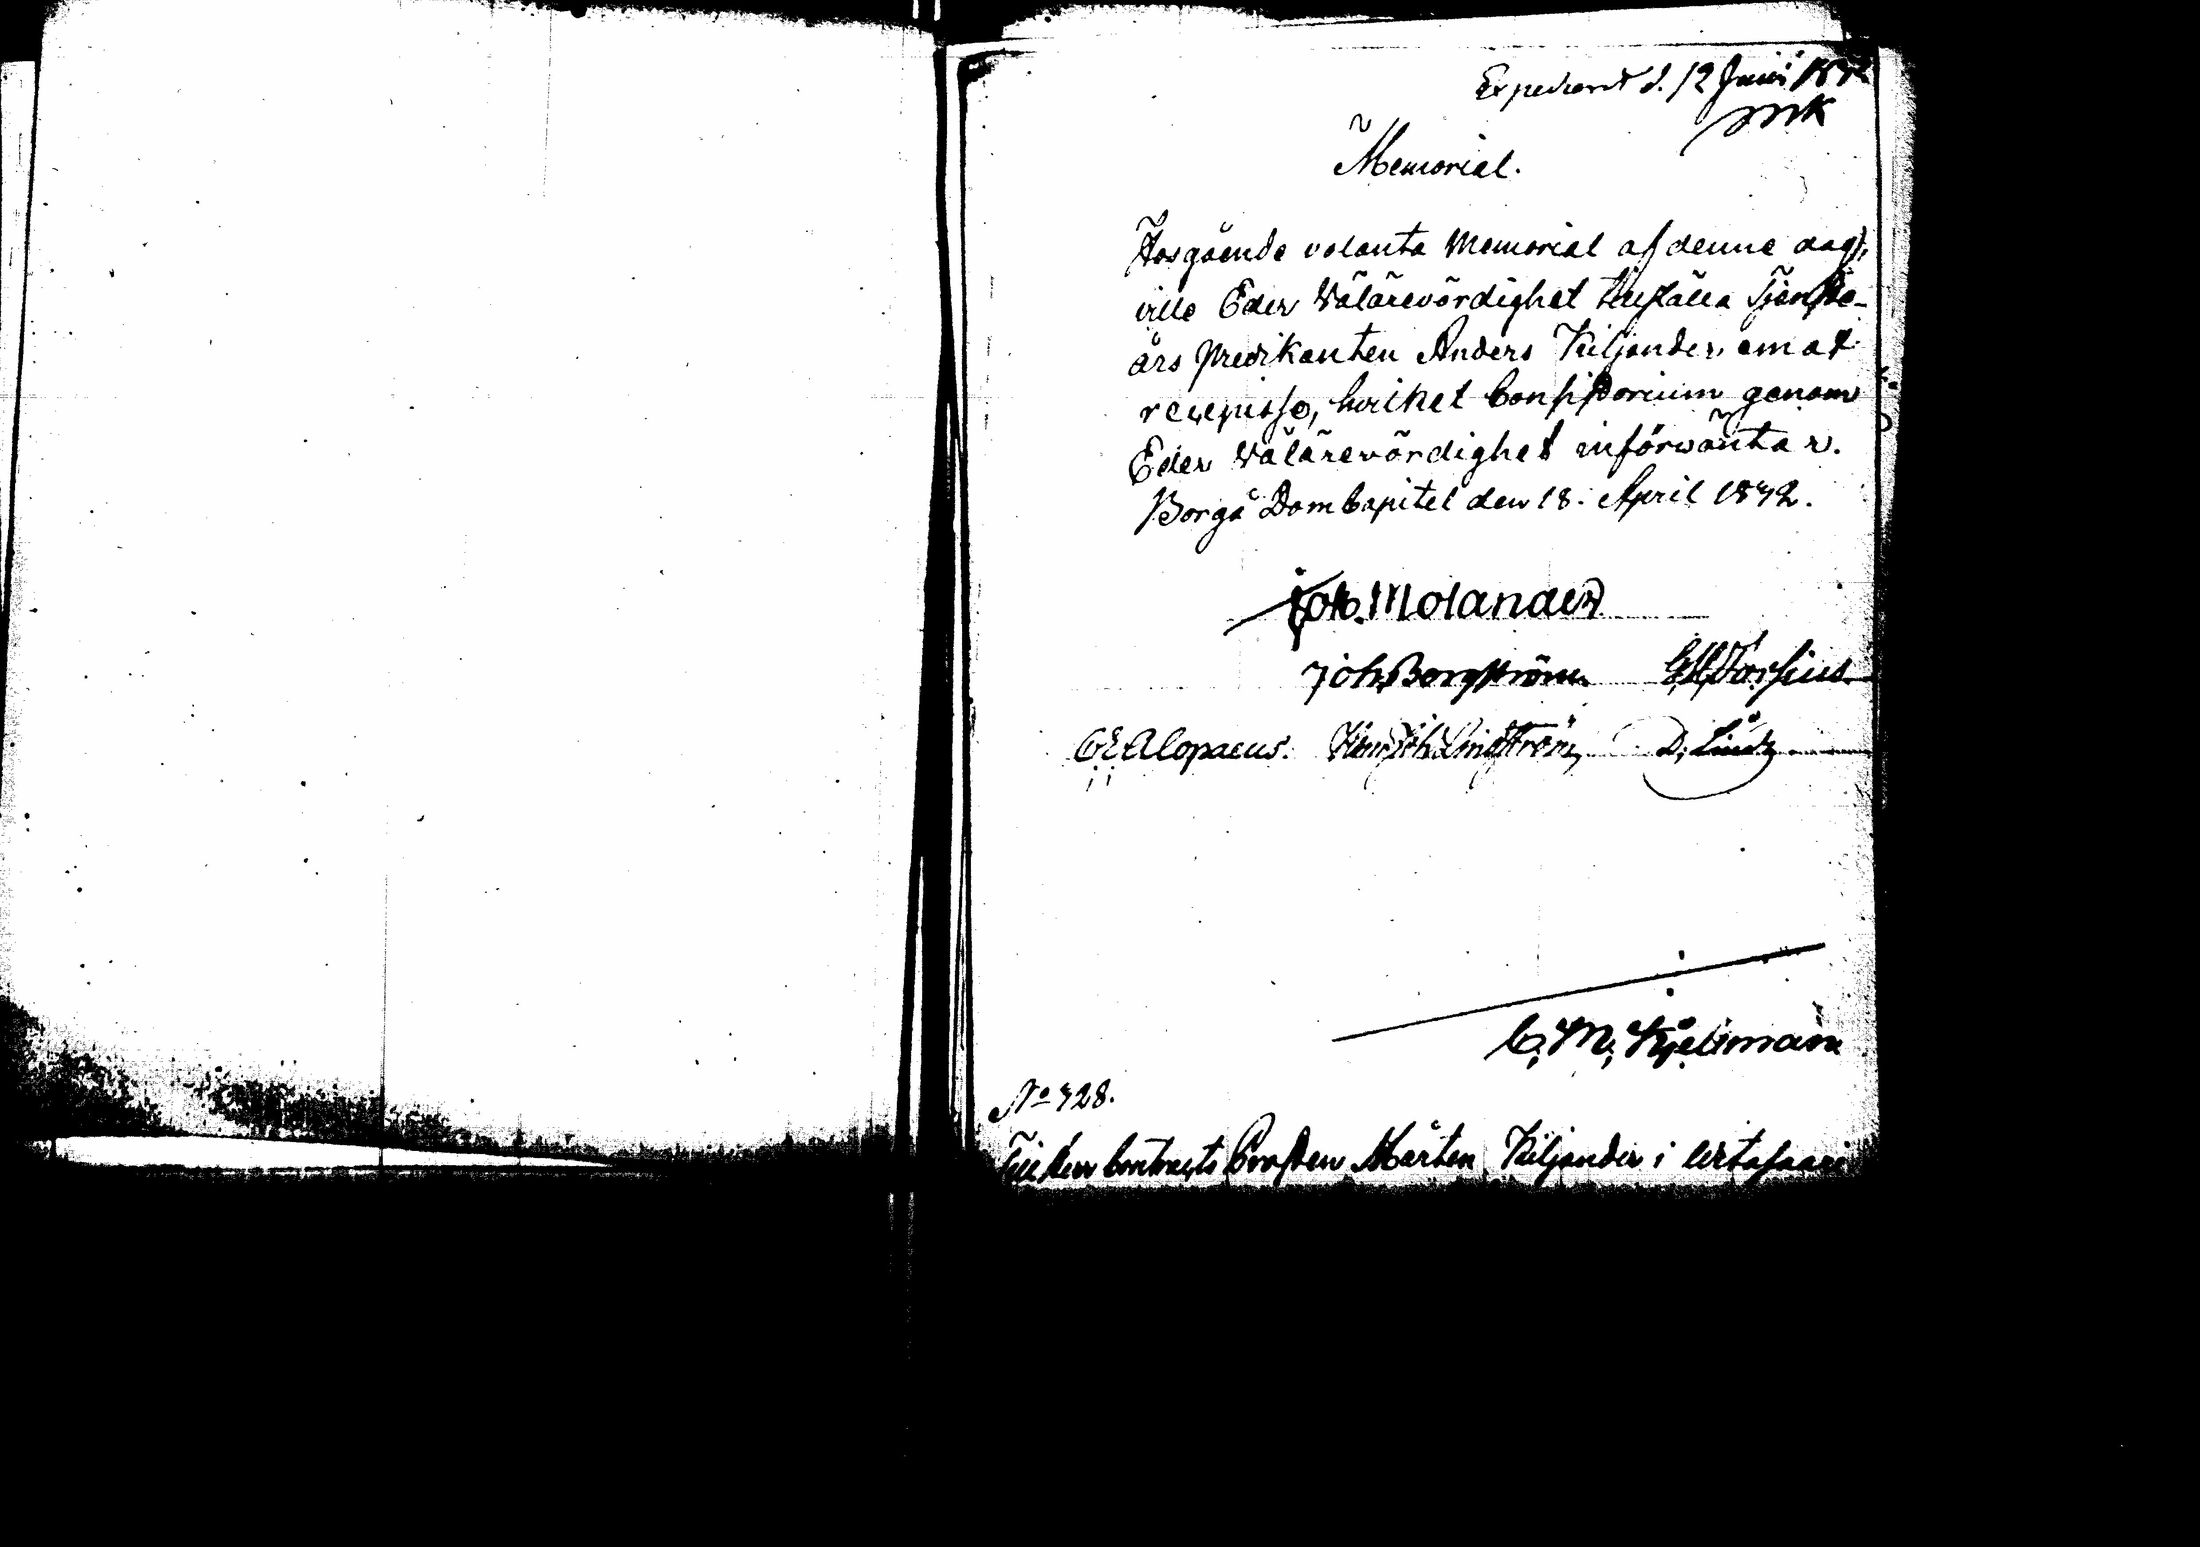 Expedierat d. 12 Junii 1872
MK
Memorial.
Hosgående volanta Memorial af denne dag,
ville Eder Välärevördighet tillställa Tjenste-
års Predikanten Anders Kiljander emot
recepisse, hvilket Consistorium genom
Eder Välärevördighet införväntar.
Borgå DomCapitel den 18. April 1842.
Joh. Molander
Joh. Borgström
G. Alopaeus. Henr. Joh. Lindström,
C. M. Kjellman
No 428.
Till Herr Contracts Prosten Mårten Kiljander i